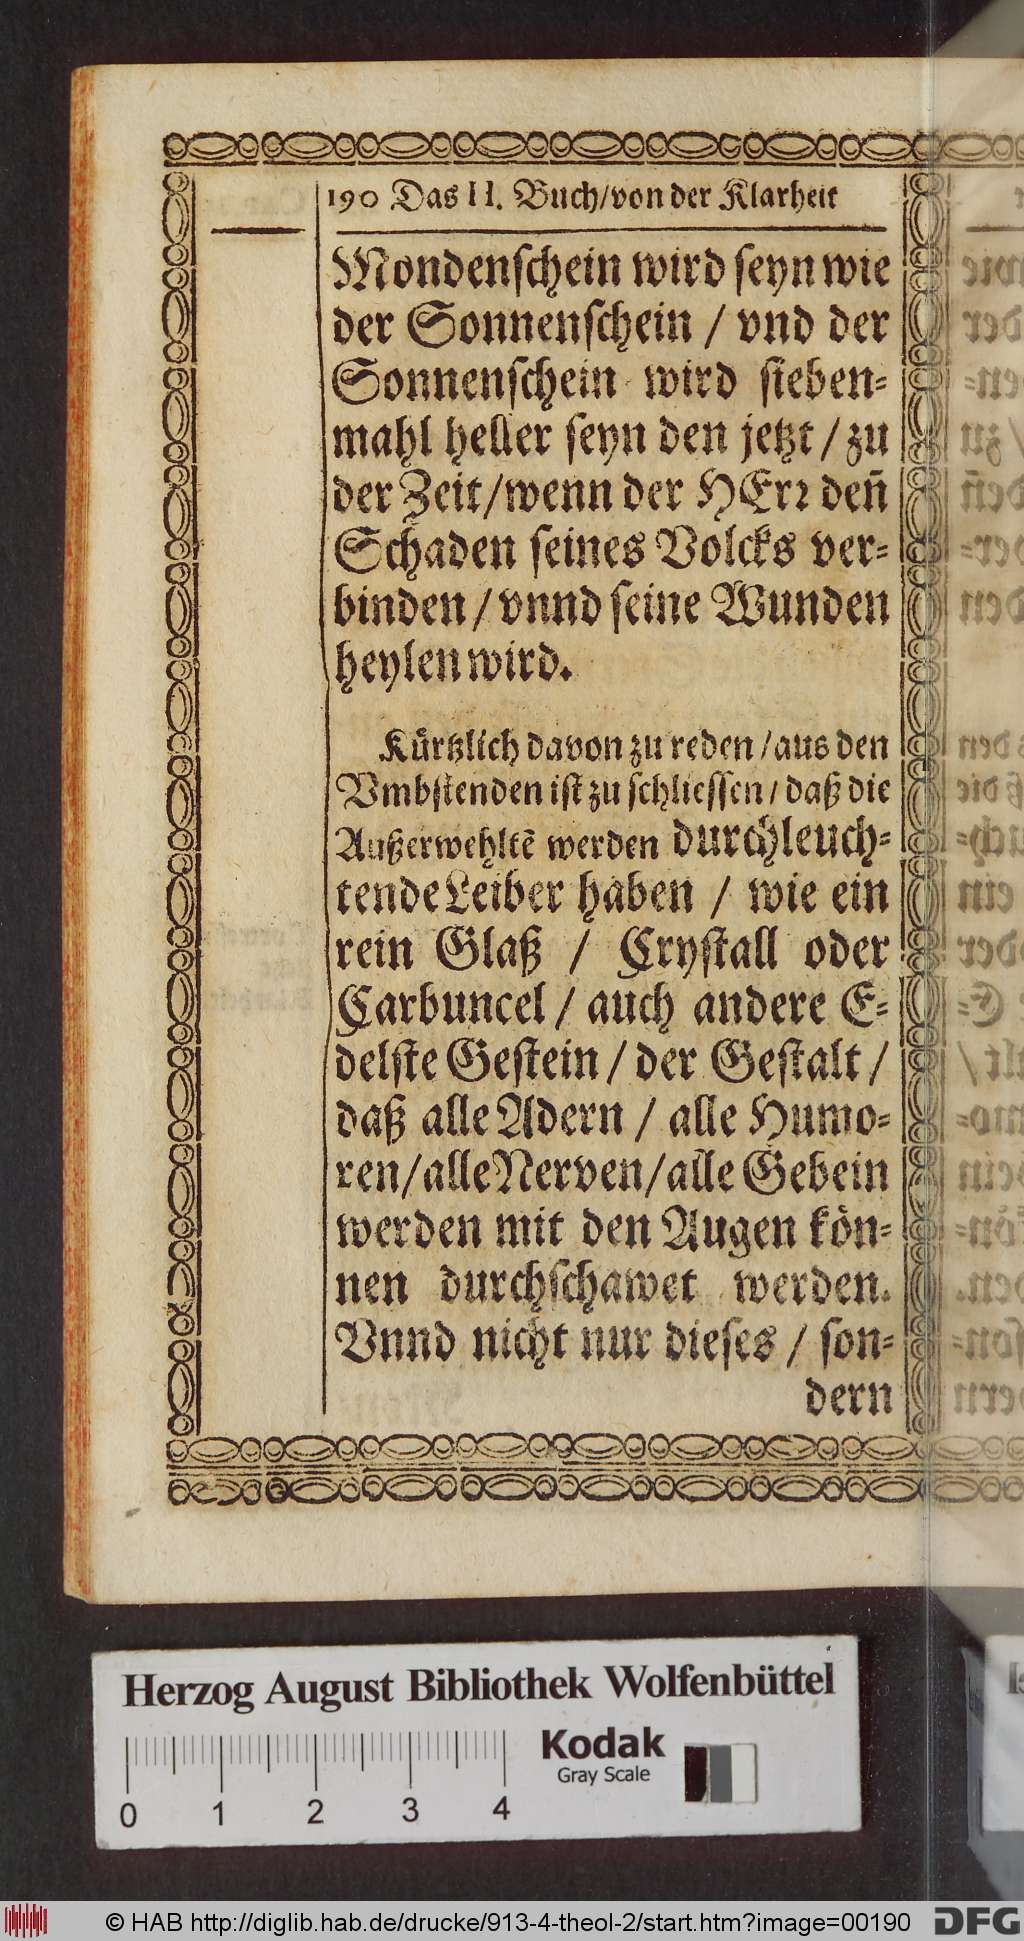 190 Das II. Buch/von der Klarheit
Mondenschein wird seyn wie
der Sonnenschein / vnd der
Sonnenschein wird sieben-
mahl heller seyn den jetzt / zu
der Zeit/wenn der HErꝛ den̄
Schaden seines Volcks ver-
binden / vnnd seine Wunden
heylen wird.
Kürtzlich davon zu reden / aus den
Vmbstenden ist zu schliessen / daß die
Außerwehltē werden durchleuch-
tende Leiber haben / wie ein
rein Glaß / Crystall oder
Carbuncel / auch andere E-
delste Gestein / der Gestalt /
daß alle Adern / alle Humo-
ren/alle Nerven/alle Gebein
werden mit den Augen kön-
nen durchschawet werden.
Vnnd nicht nur dieses / son-
dern
Herzog August Bibliothek Wolfenbüttel
Kodak
Gray Scale
0 1 2 3 4
© HAB http://diglib.hab.de/drucke/913-4-theol-2/start.htm?image=00190
DFG